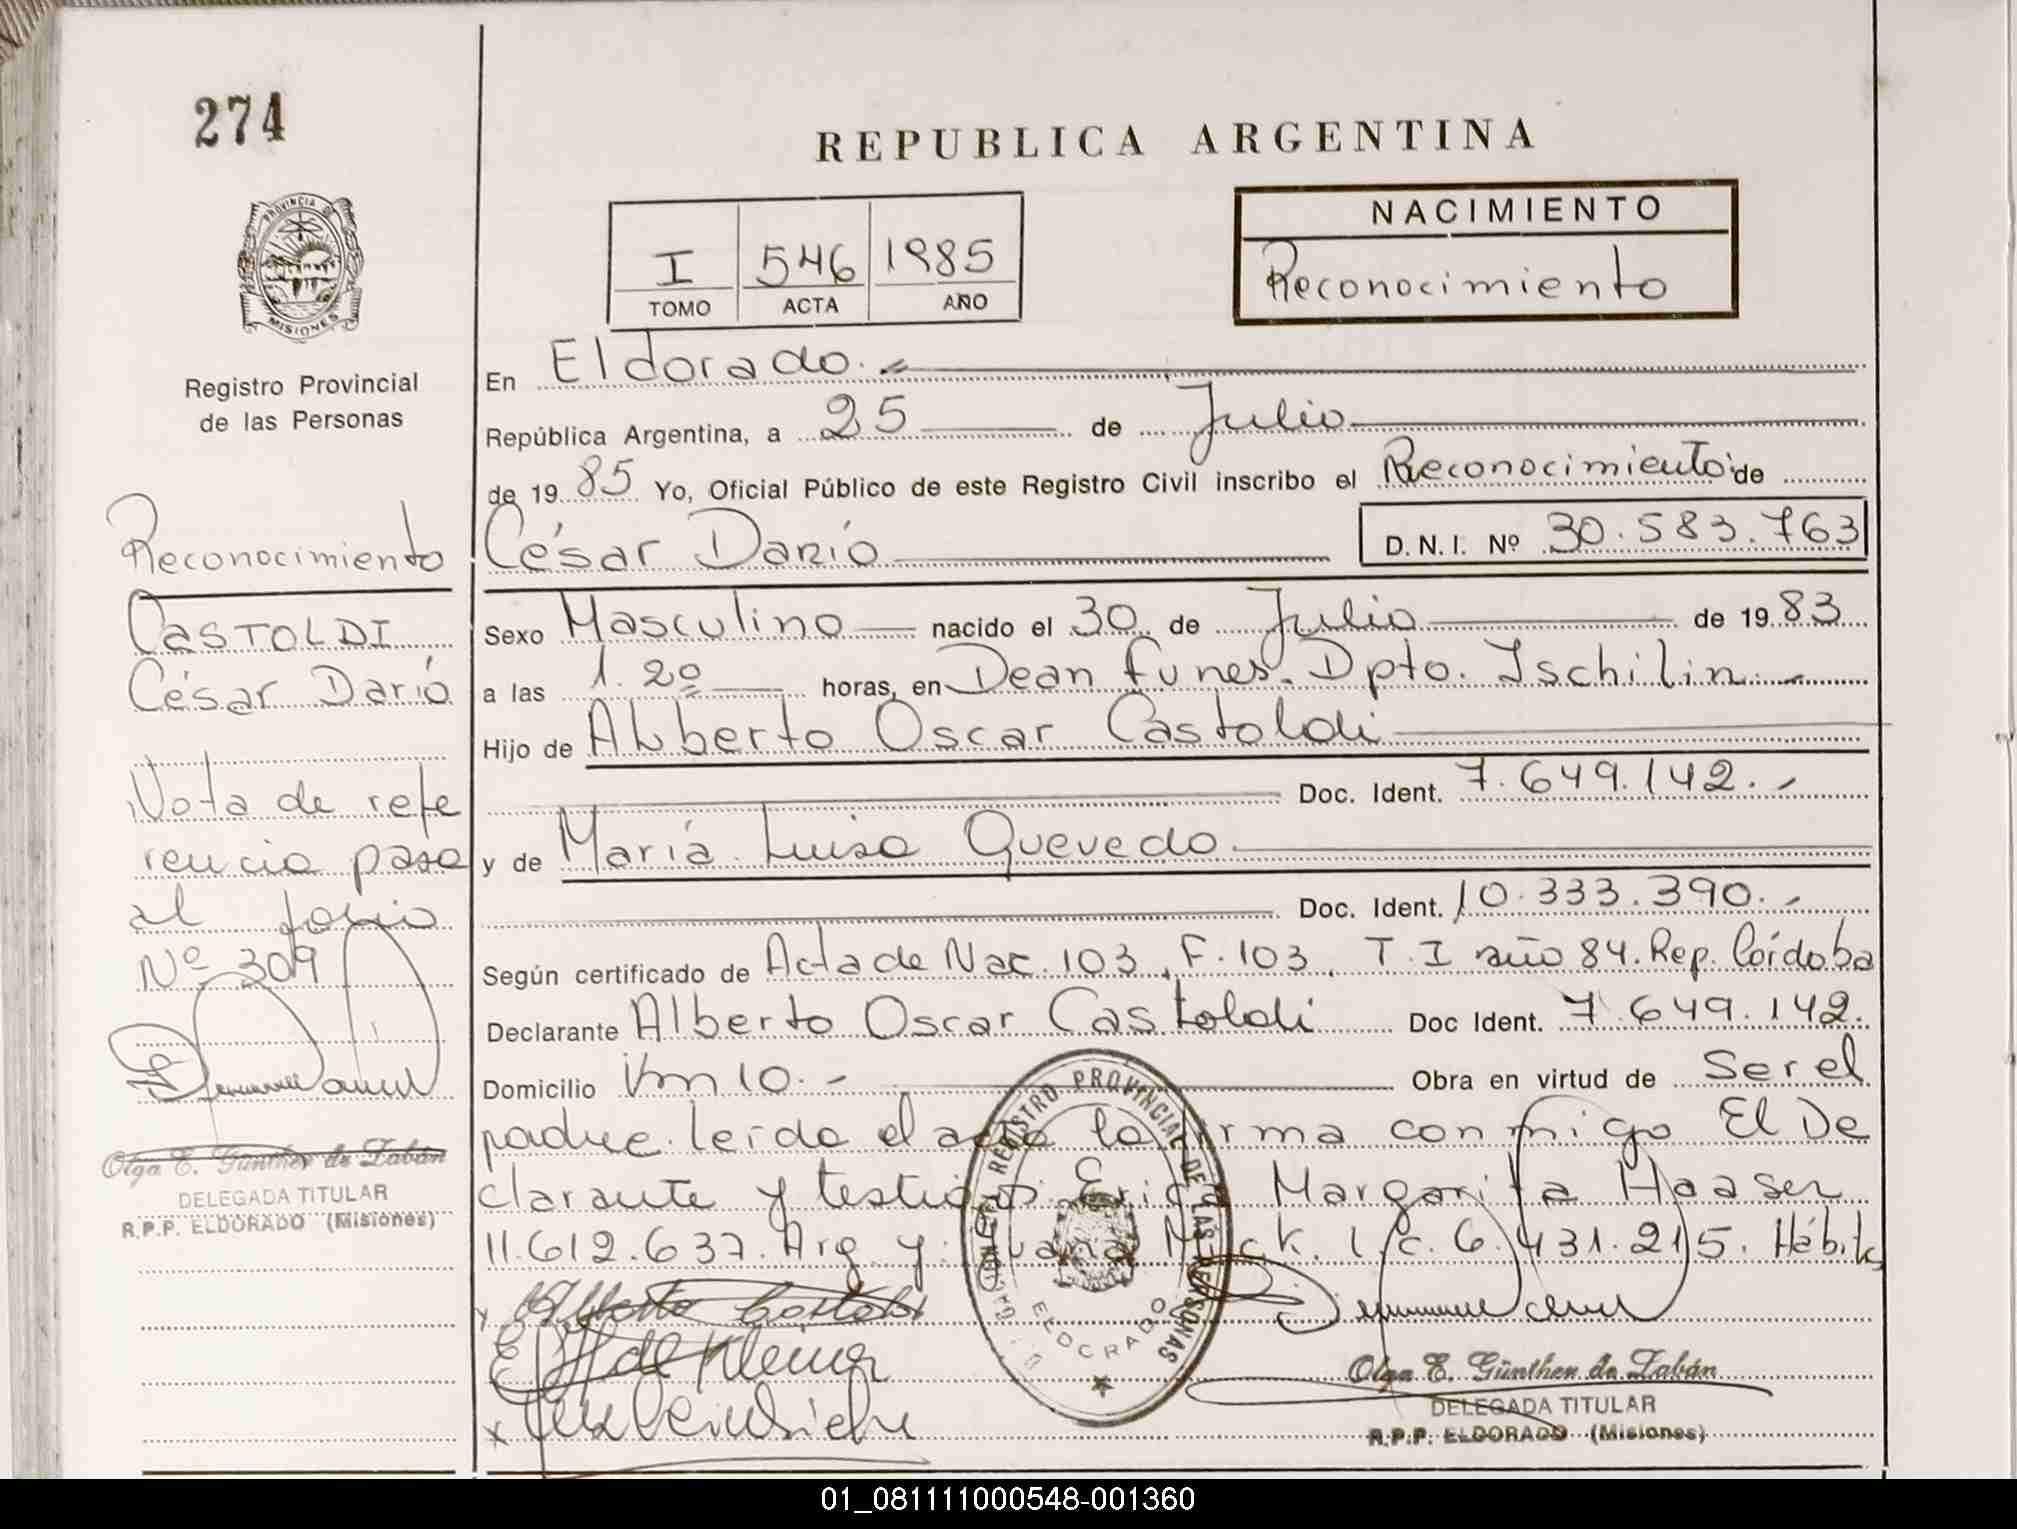 274
REPUBLICA ARGENTINA
PROVINCIA DE
MISIONES
Registro Provincial
de las Personas
I 546 1985
TOMO ACTA AÑO
NACIMIENTO
Reconocimiento
En Eldorado.
República Argentina, a 25 de Julio
de 19 85 Yo, Oficial Público de este Registro Civil inscribo el Reconocimiento de
César Darío D.N.I. Nº 30.583.763
Sexo Masculino nacido el 30 de Julio de 19 83
a las 1.20 horas, en Dean Funes. Dpto. Ischilin
Hijo de Alberto Oscar Castoldi
Doc. Ident. 7.649.142.-
y de María Luisa Quevedo
Doc. Ident. 10.333.390.-
Según certificado de Acta de Nac. 103, F. 103, T. I año 84. Rep. Córdoba
Declarante Alberto Oscar Castoldi Doc Ident. 7.649.142.
Domicilio Km 10.- Obra en virtud de Ser el
padre. leída el acta la firma conmigo El De
clarante y testigos. Erica Margarita Haaser
11.612.637. Arg. y: Juana L.c. 6.431.215. Hábiles
Reconocimiento
CASTOLDI
César Darío
Nota de refe
rencia pasa
al folio
Nº 309
Olga E. Günther de Zabán
DELEGADA TITULAR
R.P.P. ELDORADO (Misiones)
REGISTRO PROVINCIAL DE LAS PERSONAS
ELDORADO
Olga E. Günther de Zabán
DELEGADA TITULAR
R.P.P. ELDORADO (Misiones)
01_081111000548-001360